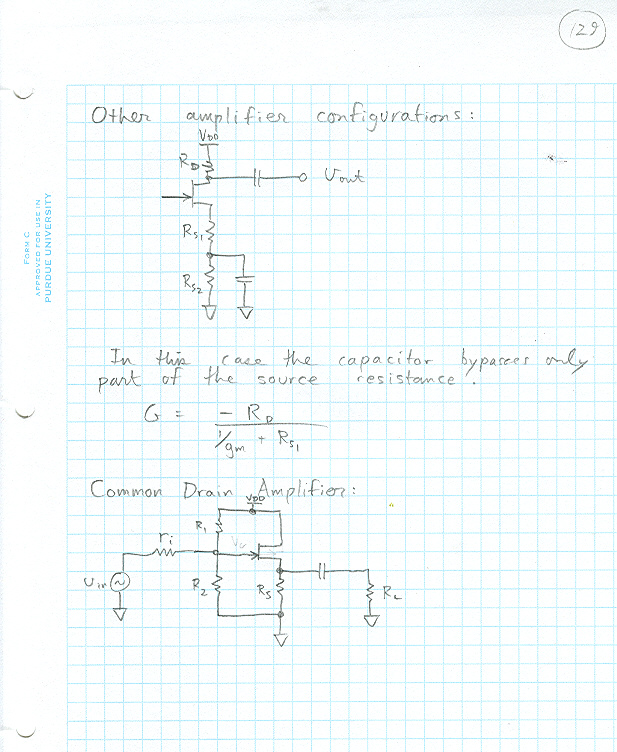 129
FORM C
APPROVED FOR USE IN
PURDUE UNIVERSITY
Other amplifier configurations:
VDD
RD
Vout
RS1
RS2
In this case the capacitor bypasses only
part of the source resistance.
G = - RD
1/gm + RS1
Common Drain Amplifier:
VDD
R1
ri
Vin
R2
RS
RL